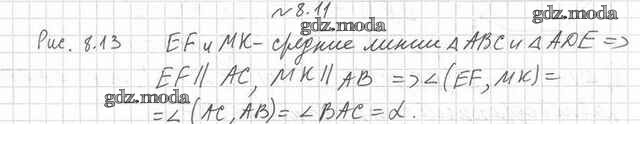 №8.11
gdz.moda
gdz.moda
Рис. 8.13 EF и MK - средние линии △ABC и △ADE =>
EF || AC, MK || AB => ∠(EF, MK) =
gdz.moda
= ∠(AC, AB) = ∠BAC = α.
gdz.moda